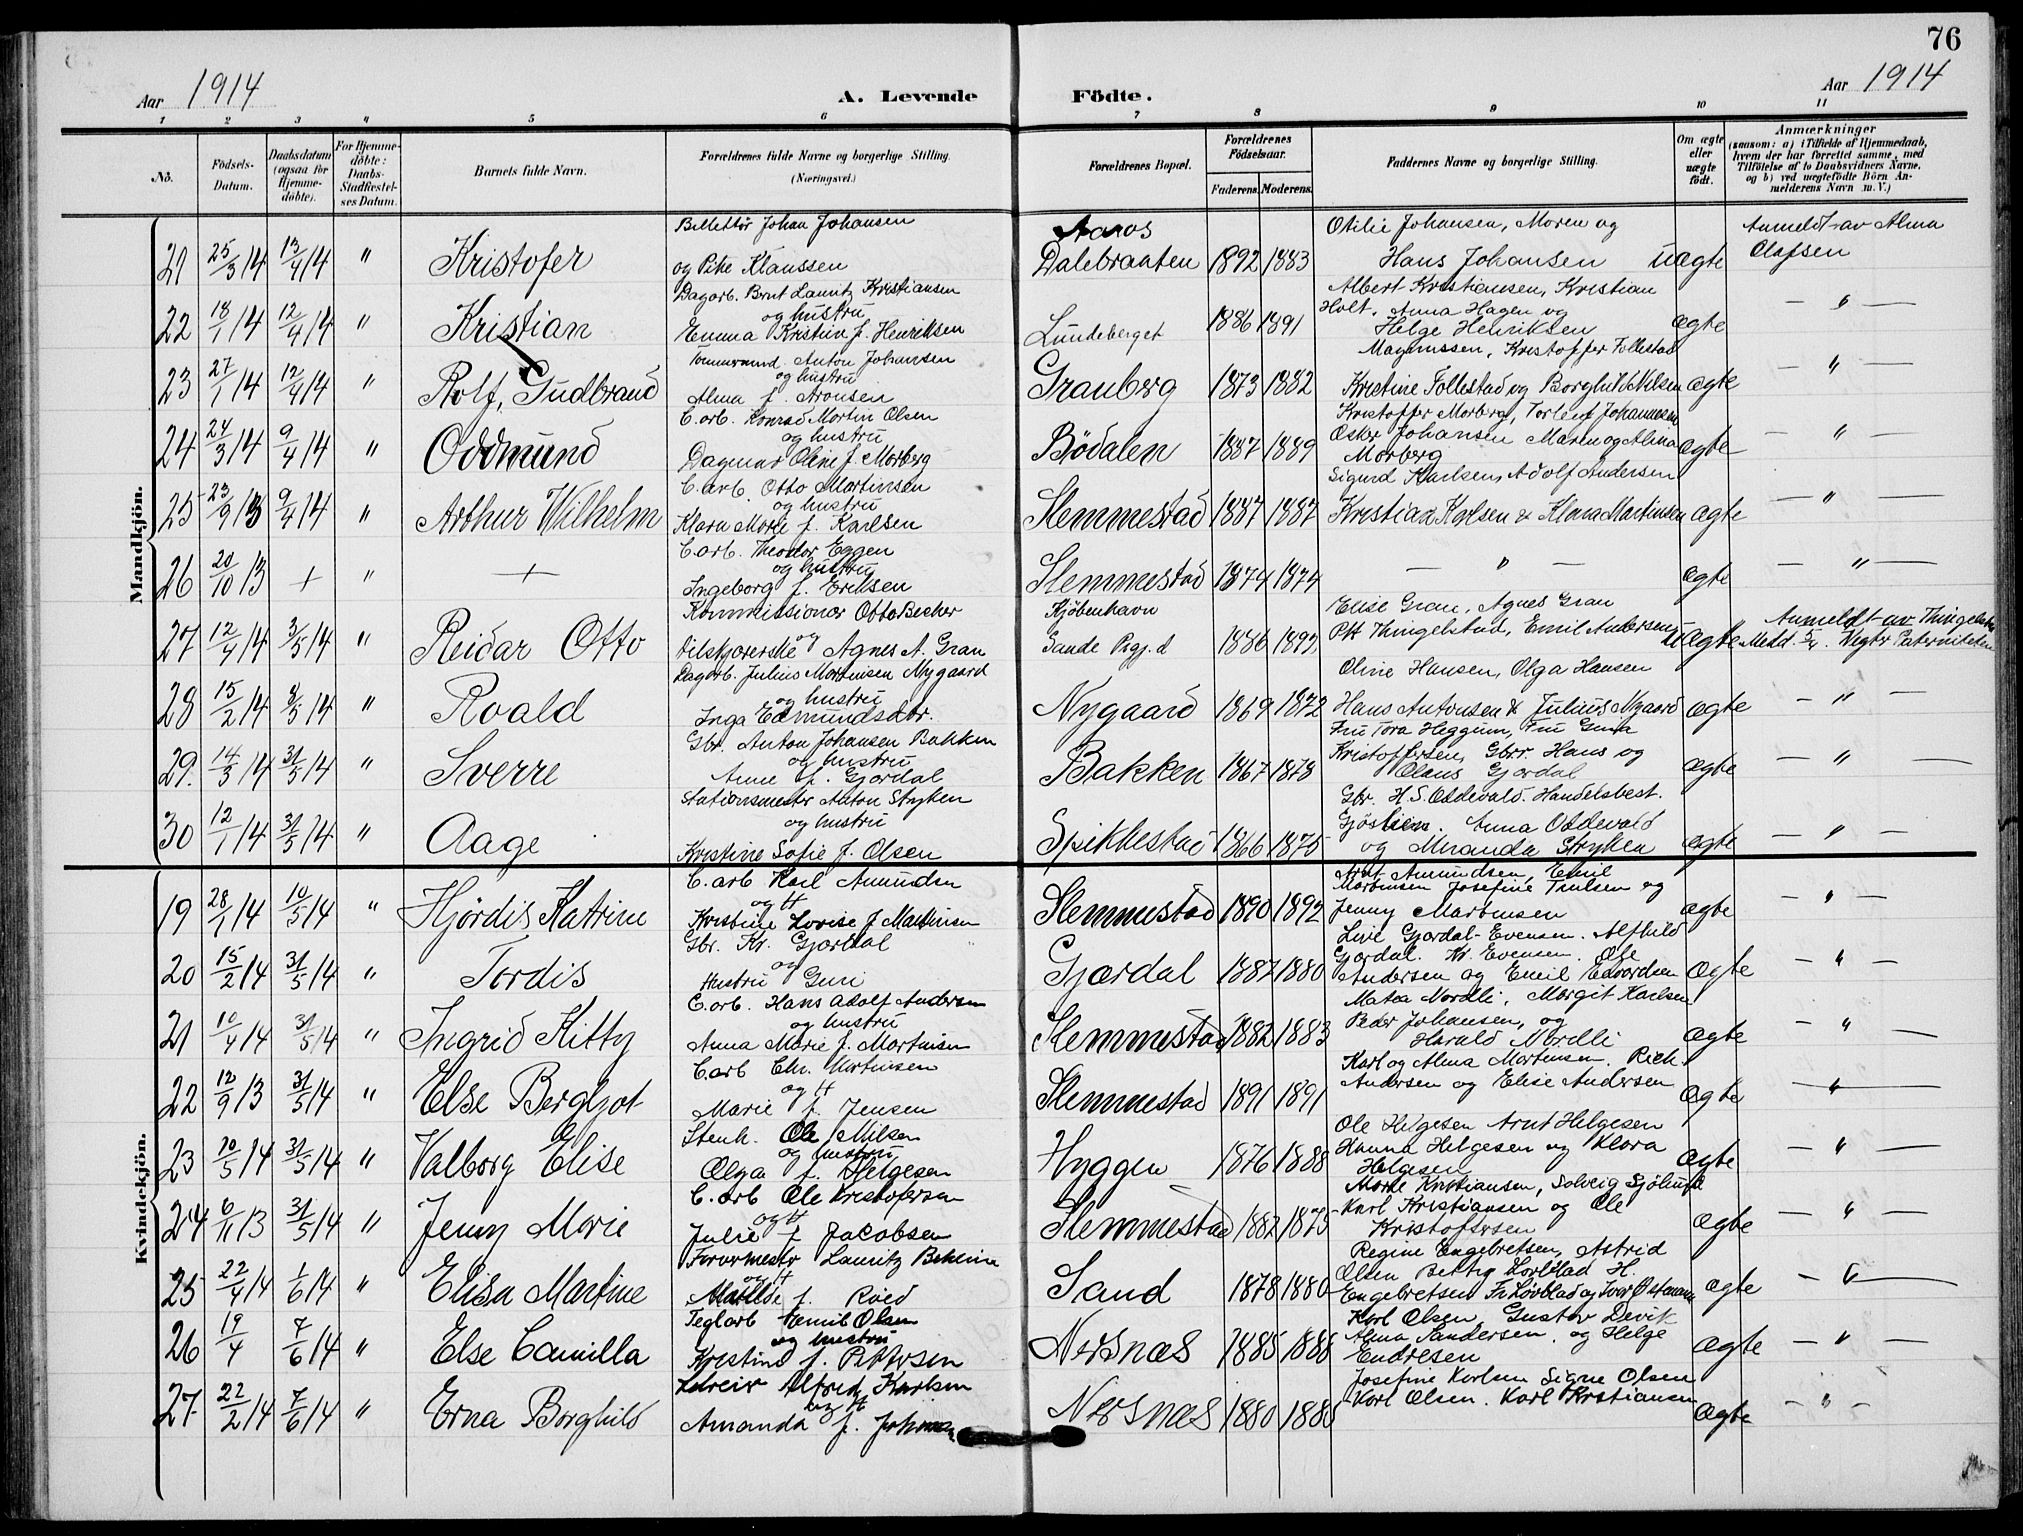 76
Aar 1914
A. Levende
Födte.
Aar 1914
1 2 3 4 5 6 7 8 9 10 11
No.
Födsels-Datum.
Daabsdatum (ogsaa for Hjemme-döbte).
For Hjemme-döbte: Daabs-Stadfæstel-ses Datum.
Barnets fulde Navn.
Forældrenes fulde Navne og borgerlige Stilling. (Næringsvei.)
Forældrenes Bopæl.
Forældrenes Födselsaar.
Faderens. Moderens.
Faddernes Navne og borgerlige Stilling.
Om ægte eller uægte födt.
Anmærkninger
(saasom: a) i Tilfælde af Hjemmedaab, hvem der har forrettet samme, med Tilföielse af to Daabsvidners Navne, og b) ved uægtefödte Börn An-melderens Navn m. V.)
Mandkjön.
21 25/3 14 13/4 14 " Kristofer
Billettör Johan Johansen
og Pike Klaussen
Aaros
Dalebraaten 1892 1883
Otilie Johansen, Moren og
Hans Johansen uægte
Anmeldt av Alma
Olafsen
22 18/1 14 12/4 14 " Kristian
Dagarb. Brut Lauritz Kristiansen
og hustru
Emma Kristine f. Henriksen
Lundeberget 1886 1891
Albert Kristiansen, Kristian
Holt, Anna Hagen og
Helge Henriksen ægte — " —
23 27/1 14 12/4 14 " Rolf, Gudbrand
Tömmermand Anton Johansen
og hustru
Alma f. Aronsen
Granberg 1873 1882
Magnussen, Kristoffer Follestad
Kristine Follestad og Borghild Nilsen ægte — " —
24 24/3 14 9/4 14 " Oddmund
C. arb. Konrad Martin Olsen
og hustru
Dagmar Oline f. Morberg
Bödalen 1887 1889
Kristoffer Morberg, Torleif Johannesen
Oskar Johansen Maren og Alma
Morberg ægte — " —
25 23/9 13 9/4 14 " Arthur Wilhelm
C. arb. Otto Martinsen
og hustru
Klara Marie f. Karlsen
Slemmestad 1887 1887
Sigurd Karlsen, Adolf Andersen
Kristian Karlsen & Klara Martinsen ægte — " —
26 20/10 13 + " +
C. arb. Theodor Eggen
og hustru
Ingeborg f. Eriksen
Slemmestad 1874 1874 — " — ægte — " —
27 12/4 14 3/5 14 " Reidar Otto
Kommissionær Otto Becker
og
Agnes A. Gran
Kjöbenhavn
Sande Prgj. d 1886 1892
Elise Gran, Agnes Gran
Ott Thingelstad, Emil Andersen uægte
Anmeldt av Thingelstad
28 15/2 14 8/5 14 " Roald
Dagarb. Julius Mortensen Nygaard
og hustru
Inga Edmundsdtr.
Nygaard 1869 1872
Oline Hansen, Olga Hansen
Hans Antonsen & Julius Nygaard ægte — " —
29. 14/3 14 31/5 14 " Sverre
Gbr. Anton Johansen Bakken
og hustru
Anne f. Gjerdal
Bakken 1867 1878
Fru Tora Heggum, Fru Gina
Kristoffersen, Gbrr. Hans og
Olaus Gjerdal ægte — " —
30 12/1 14 31/5 14 " Aage
Stationsmester Anton Stryken
og hustru
Kristine Sofie f. Olsen
Spikkestad 1866 1875
Gbr. H. S. Oddevald. Handelsbest.
Gjöstien. Anna Oddevald
og Miranda Stryken ægte — " —
Kvindekjön.
19 28/1 14 10/5 14 " Hjördis Katrine
C. arb Karl Amundsen
og H
Kristine Lovise f Martinsen
Slemmestad 1890 1892
Arnt Amundsen, Emil
Martinsen Josefine Trulsen og
Jenny Martinsen ægte — " —
20 15/2 14 31/5 14 " Tordis
Gbr. Kr. Gjerdal
og
Hustru Guri
Gjærdal 1887 1880
Live Gjerdal-Evensen. Alfhild
Gjerdal. Kr. Evensen. Ole
Andersen og Emil Edvardsen ægte — " —
21 10/4 14 31/5 14 " Ingrid Kitty
C. arb. Hans Adolf Andersen
og hustru
Anna Marie f. Martinsen
Slemmestad 1882 1883
Matea Nordli, Margit Karlsen
Peder Johansen, og
Harald Nordli ægte — " —
22 12/9 13 31/5 14 " Else Bergljot
C. arb Chr. Mortensen
og H
Marie f. Jensen
Slemmestad 1891 1891
Karl og Alma Mortensen. Rich.
Andersen og Elise Andersen ægte — " —
23 10/5 14 31/5 14 " Valborg Elise
Stenh. Ole Nilsen
og hustru
Olga f. Helgesen
Hyggen 1876 1888
Ole Helgesen Arnt Helgesen
Hanna Helgesen og Klara
Helgesen ægte — " —
24 6/11 13 31/5 14 " Jenny Marie
C. arb Ole Kristofersen
og H
Julie f Jacobsen
Slemmestad 1882 1875
Marie Kristiansen, Solveig Sjölund
Karl Kristiansen og Ole
Kristofersen ægte — " —
25 22/4 14 1/6 14 " Elisa Martine
Farvermester Lauritz
og H
Matilde f. Roed
Sand 1878 1880
Regine Engebretsen, Astrid
Olsen Betty Lövblad H.
Engebretsen Fr Lövblad og Ivar Östmann ægte — " —
26 19/4 7/6 14 " Else Camilla
Teglarb Emil Olsen
og hustru
Kristine f. Pettersen
Nersnæs 1885 1886
Karl Olsen, Gustav Devik
Alma Sandersen. og Helge
Endresen ægte — " —
27 22/2 14 7/6 14 " Erna Borghild
Alfred Karlsen
og H
Amanda f. Johnsen
Nersnæs 1880 1885
Josefine Karlsen Signe Olsen
Karl Olsen. Karl Kristiansen ægte — " —